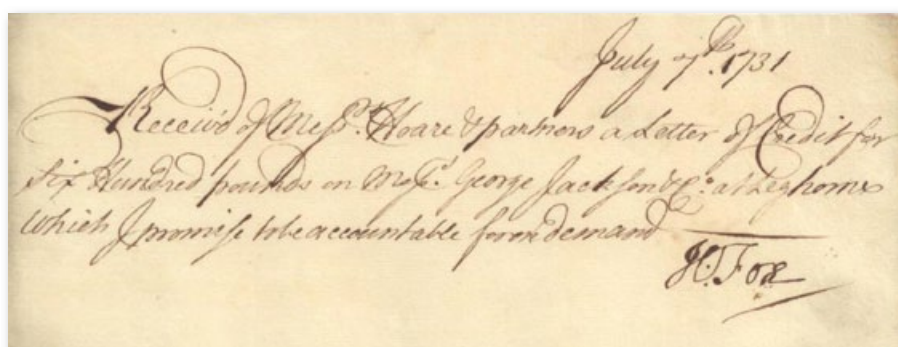 July 7th. 1731
Receiv'd of Messrs. Hoare & partners a Letter of Credit for
Six Hundred pounds on Messrs. George Jackson & Co: at Leghorne
Which I promise to be accountable for on demand
H: Fox